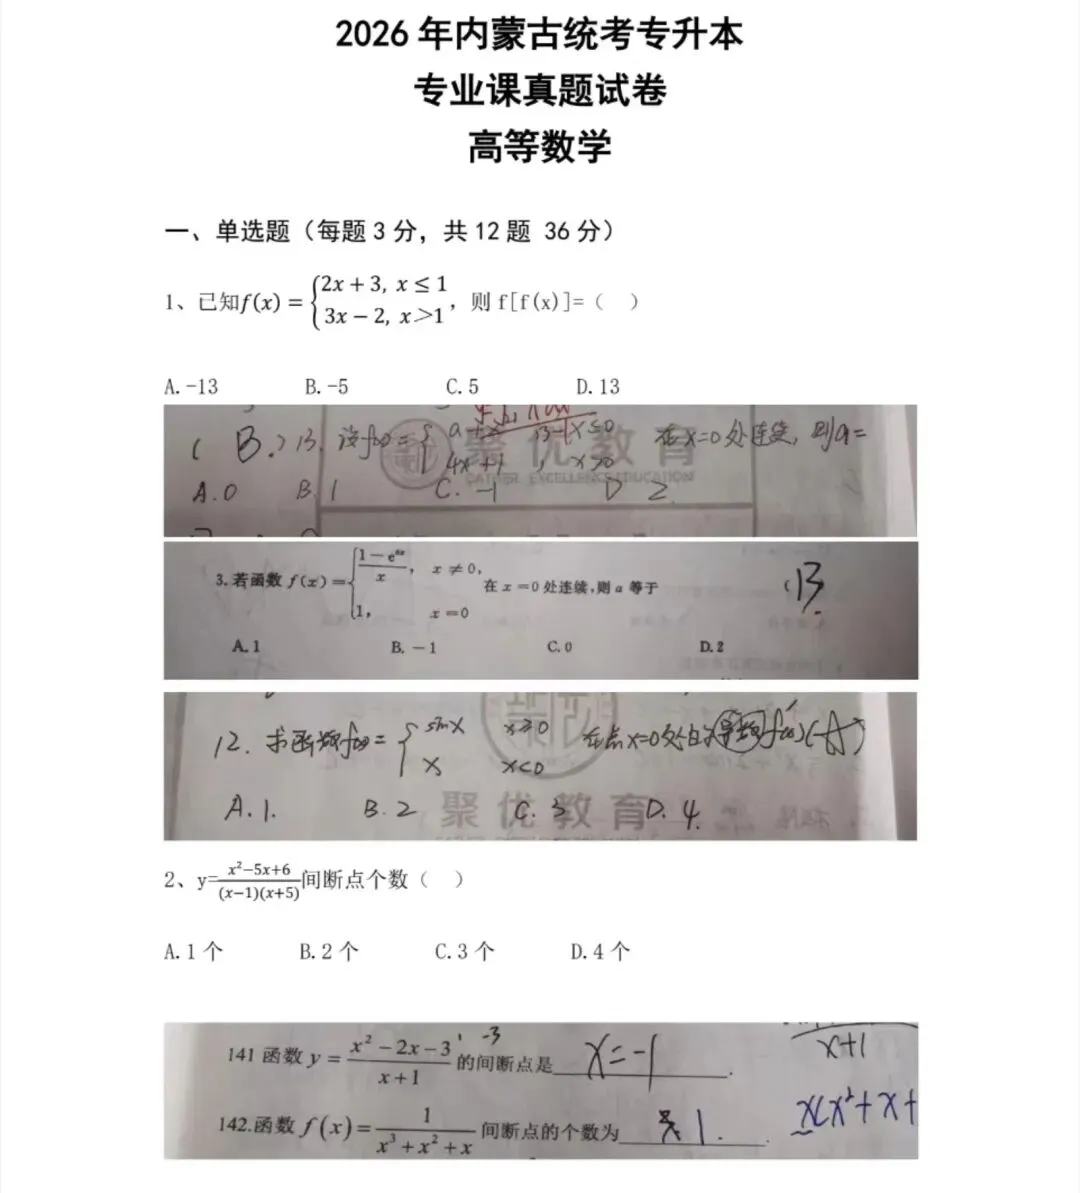 2026 年内蒙古统考专升本
专业课真题试卷
高等数学
一、单选题（每题 3 分，共 12 题 36 分）
1、已知f(x) = {2x + 3, x ≤ 1
3x − 2, x＞1，则 f[f(x)]=（ ）
A. -13 B. -5 C. 5 D. 13
( B. ) 13. 设f(x) = { a+x x≤0 在x=0处连续，则a=
4x+1, x>0
聚优教育
CATHER EXCELLENCE EDUCATION
A. 0 B. 1 C. -1 D 2.
3. 若函数 f(x) = { 1−e^ax / x, x ≠ 0,
1, x = 0 在 x = 0 处连续,则 a 等于 ( B.
A. 1 B. −1 C. 0 D. 2
12. 求函数f(x) = { sinx x≥0 在点x=0处的导数f'(x) (A)
x x<0
聚优教育
A. 1. B. 2 C. 3 D. 4.
2、y= x²−5x+6 / (x−1)(x+5) 间断点个数（ ）
A. 1 个 B. 2 个 C. 3 个 D. 4 个
141 函数 y = x² − 2x − 3 / x + 1 的间断点是 x=-1 .
1 -3
x+1
142.函数 f(x) = 1 / x³ + x² + x 间断点的个数为 1. .
x(x²+x+